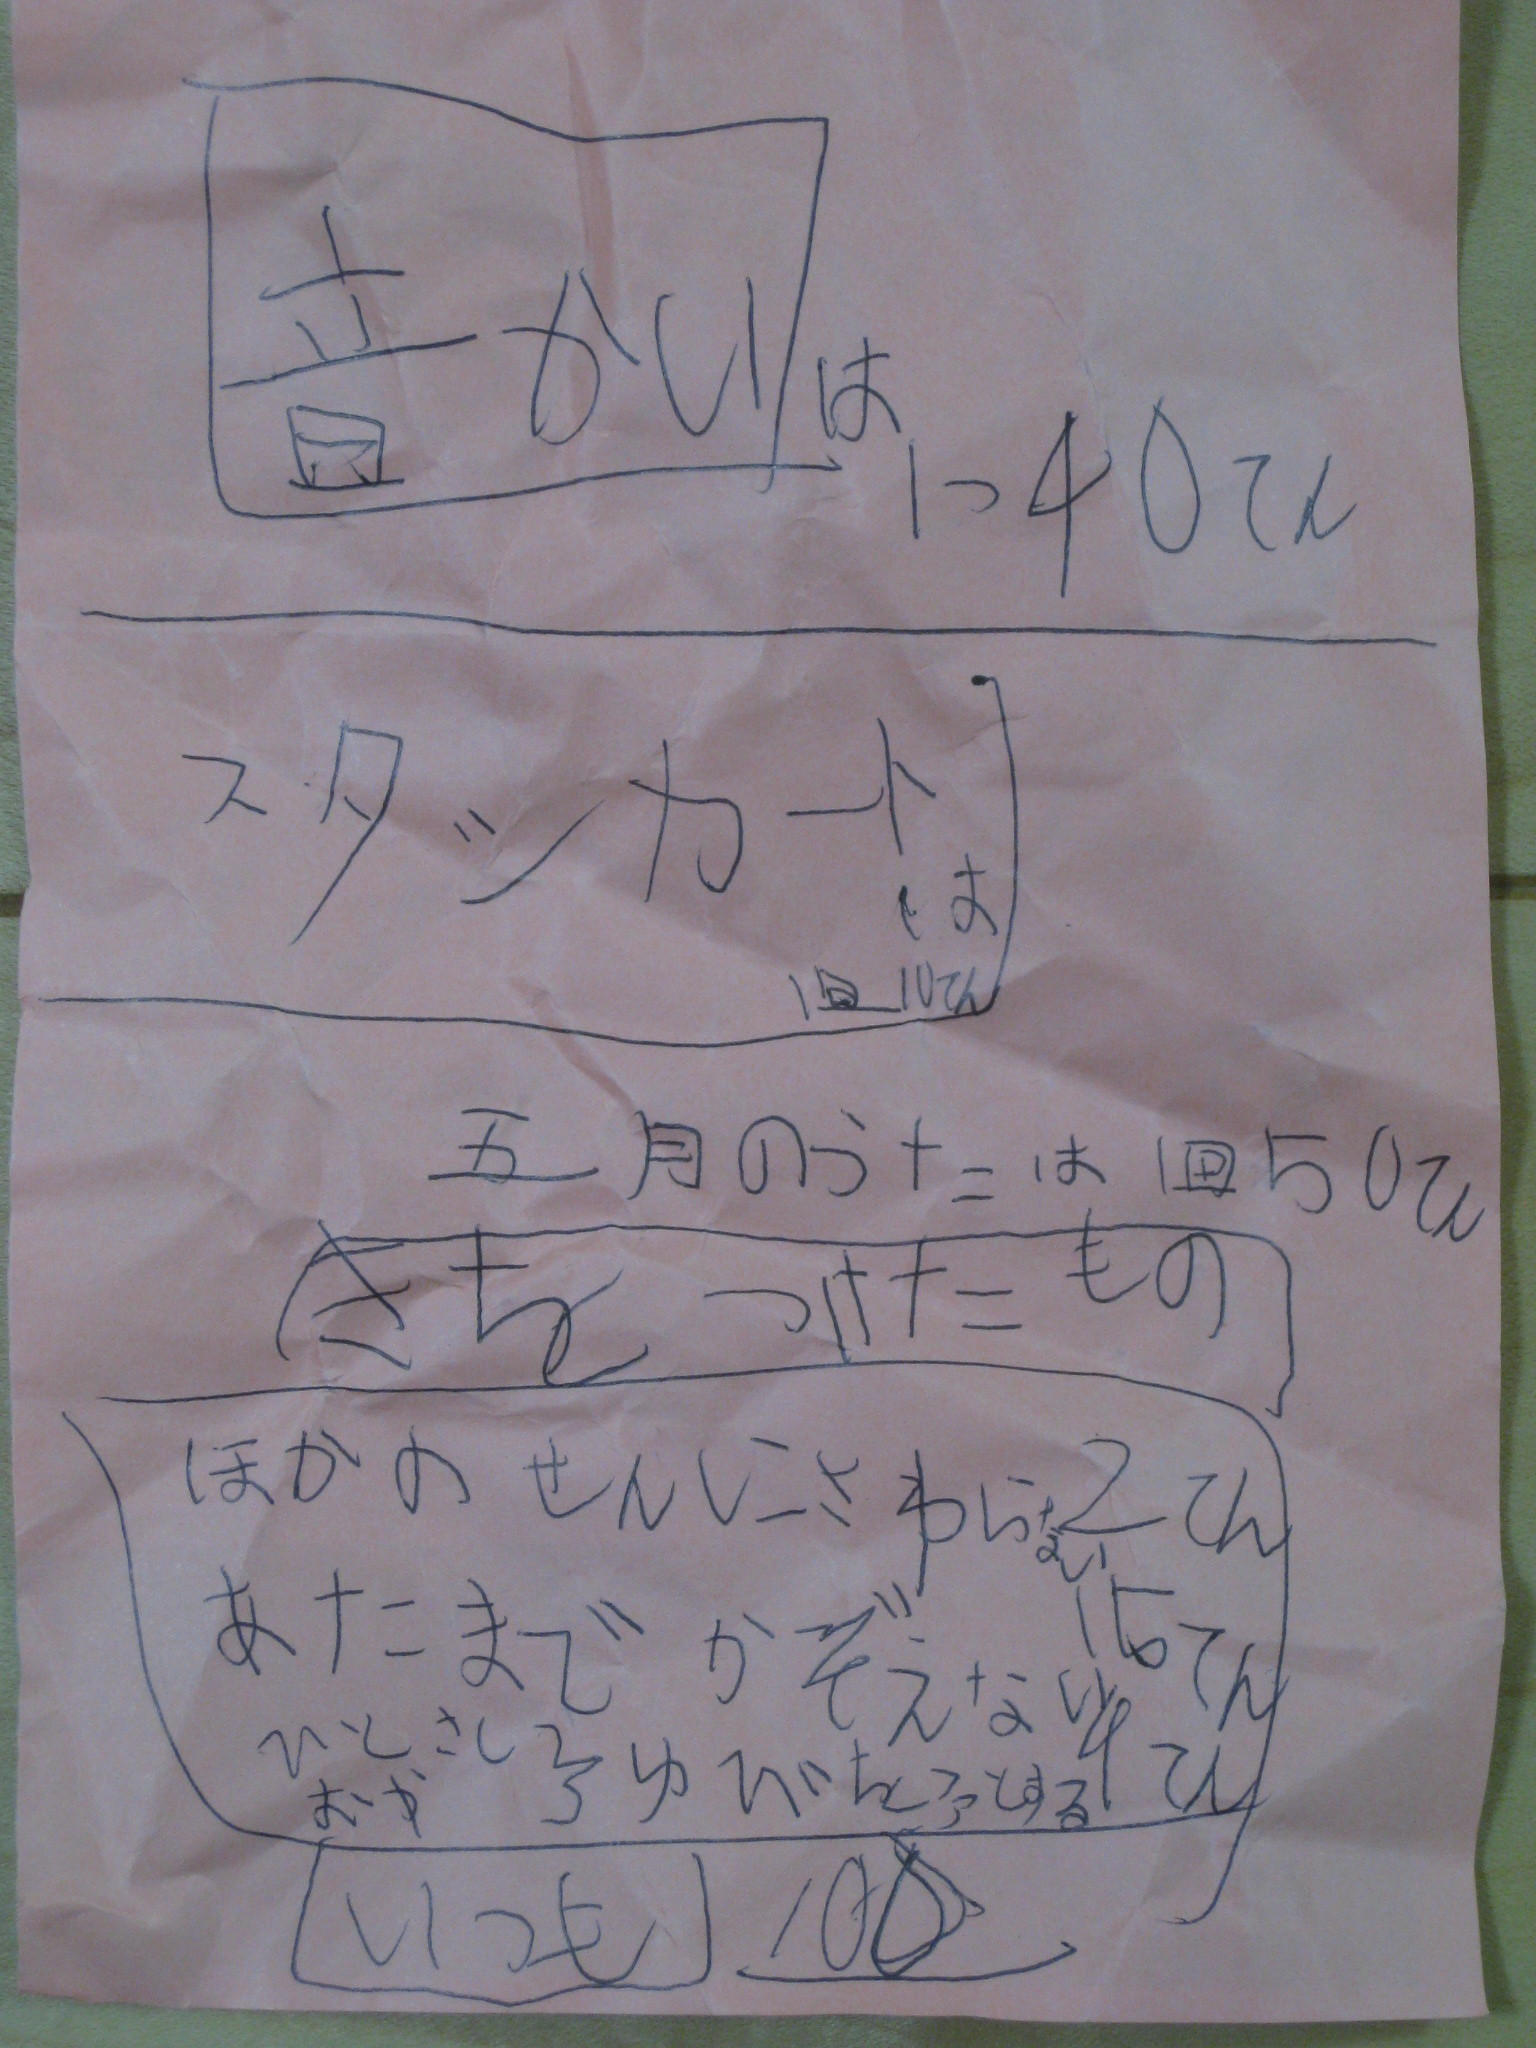 音かいは
1つ40てん
スタッカート
は
1回10てん
五月のうたは1回50てん
きをつけたもの
ほかのせんにさわらない2てん
あたまでかぞえない15てん
ひとさしゆび
おや
いつも 100